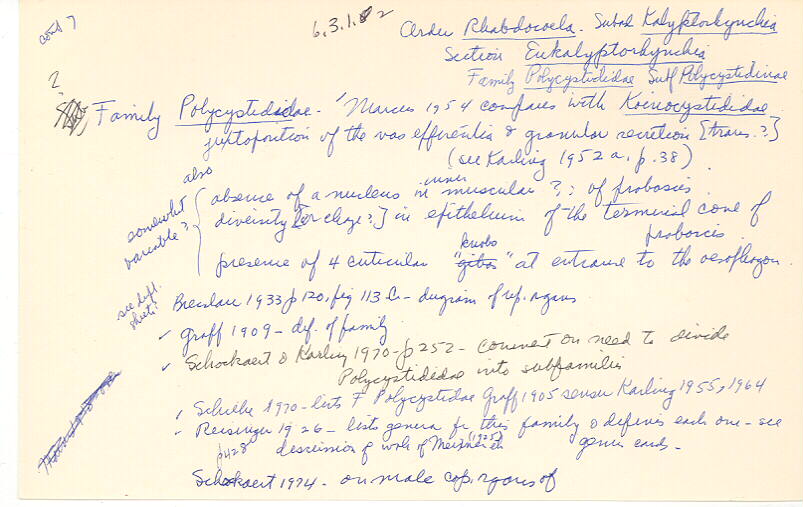 cont'd 7
6.3.1.2
Order Rhabdocoela. Subord Kalyptorhynchia
Section Eukalyptorhynchia
Family Polycystididae Subf Polycystidinae
?
Family Polycystididae - Marcus 1954 compares with Koinocystididae
juxtaposition of the vas efferentia & granular secretion [trans.?]
(see Karling 1952a, p.38)
also
somewhat variable?
absence of a nucleus in inner muscular ?: of proboscis
diversity [or change?] in epithelium of the terminal cone of
proboscis
presence of 4 cuticular "gibas" knobs at entrance to the oesophagon.
see defl. sheets
Breslau 1933 p 120, fig 113 b - diagram of rep. organs
✓ Graff 1909 - def. of family
✓ Schockaert & Karling 1970 - p 252 - comment on need to divide
Polycystididae into subfamilies
✓ Schilke 1970 - lists F Polycystidae Graff 1905 sensu Karling 1955, 1964
✓ Reisinger 1926 - lists genera for this family & defines each one - see
p 428 discussion of work of Meixner (1925) genus cards -
Schockaert 1974 - on male cop. organs of